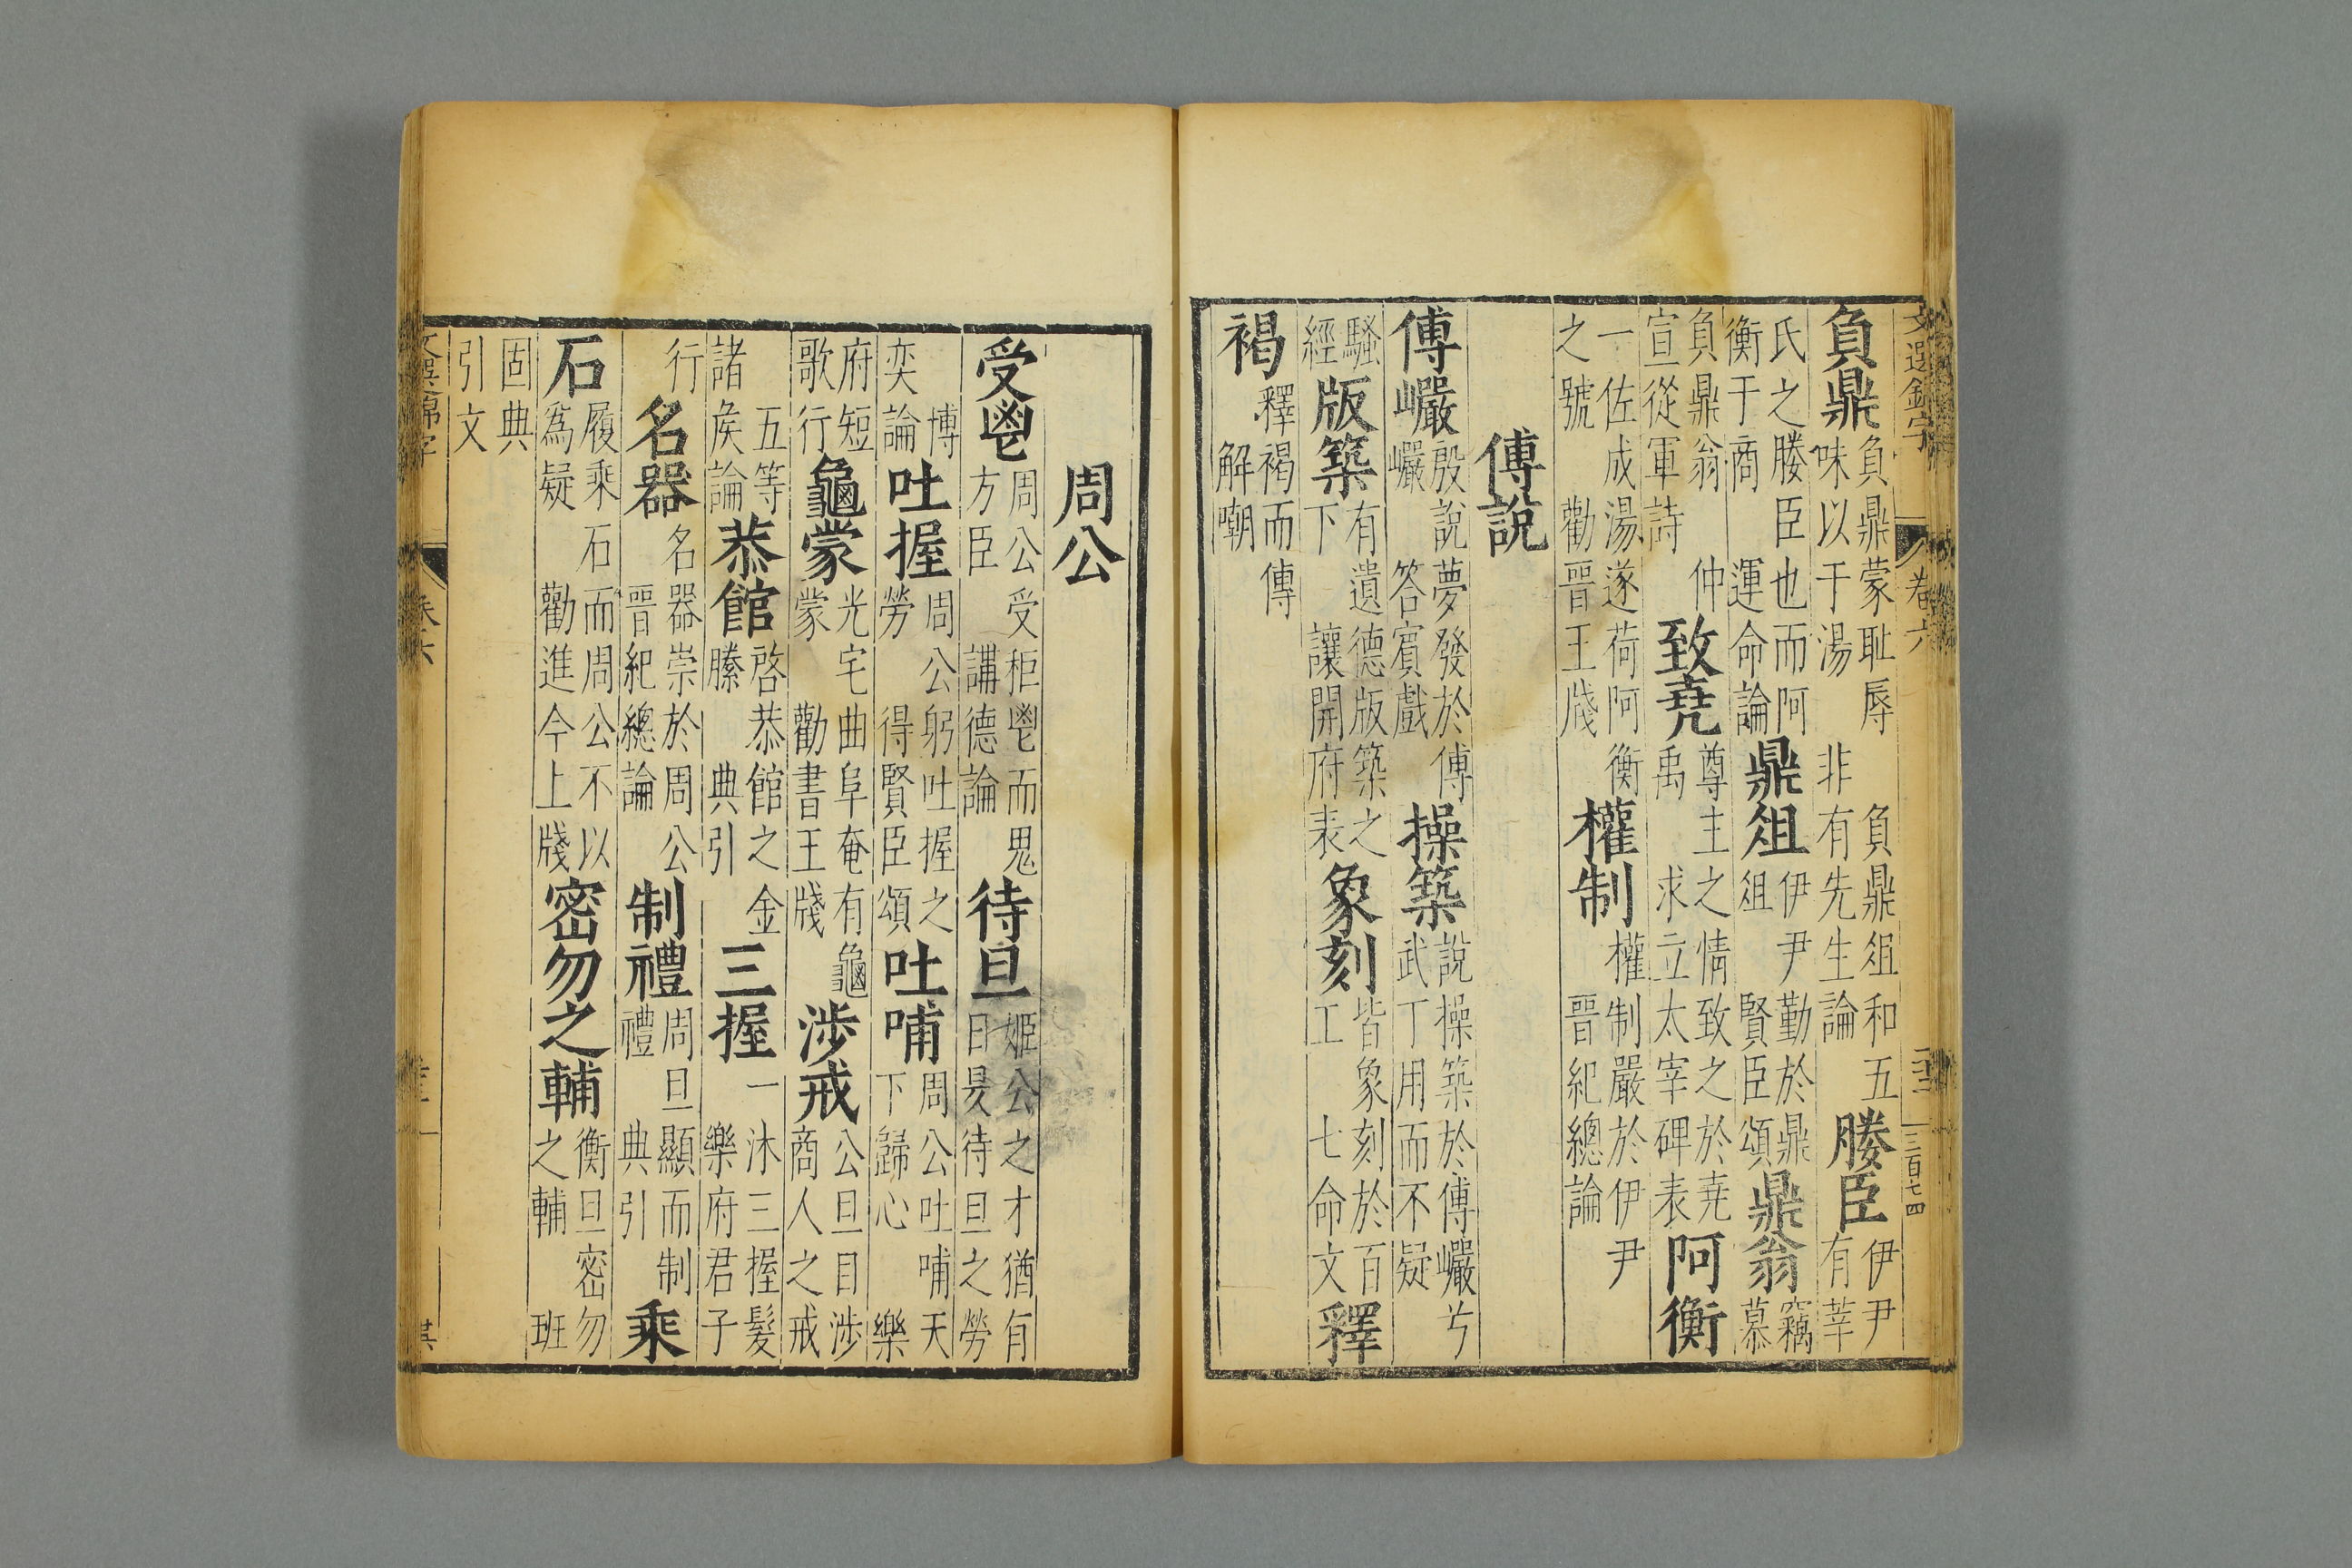 文選錦字 卷六 三百七四
負鼎負鼎蒙耻辱負鼎俎和五味以于湯非有先生論媵臣伊尹有莘
氏之媵臣也而阿衡于商運命論鼎俎伊尹勤於鼎俎賢臣頌鼎翁竊慕
負鼎翁仲宣從軍詩致堯尊主之情致之於堯禹求立太宰碑表阿衡
一佐成湯遂荷阿衡之號勸晋王牋權制權制嚴於伊尹晋紀總論
傅說
傅巖殷說夢發於傅巖答賓戲操築說操築於傅巖兮武丁用而不疑
騷經版築有遺德版築之下讓開府表象刻皆象刻於百工七命文釋
褐釋褐而傅解嘲
周公
受鬯周公受秬鬯而鬼方臣講德論待旦姬公之才猶有日昃待旦之勞
博奕論吐握周公躬吐握之勞得賢臣頌吐哺周公吐哺天下歸心樂
府短歌行龜蒙光宅曲阜奄有龜蒙勸書王牋涉戒公旦目涉商人之戒
五等諸侯論恭館啓恭館之金縢典引三握一沐三握髮樂府君子
行名器名器崇於周公晋紀總論制禮周旦顯而制禮典引乘
石履乘石而周公不以為疑勸進今上牋密勿之輔衡旦密勿之輔班
固典引文